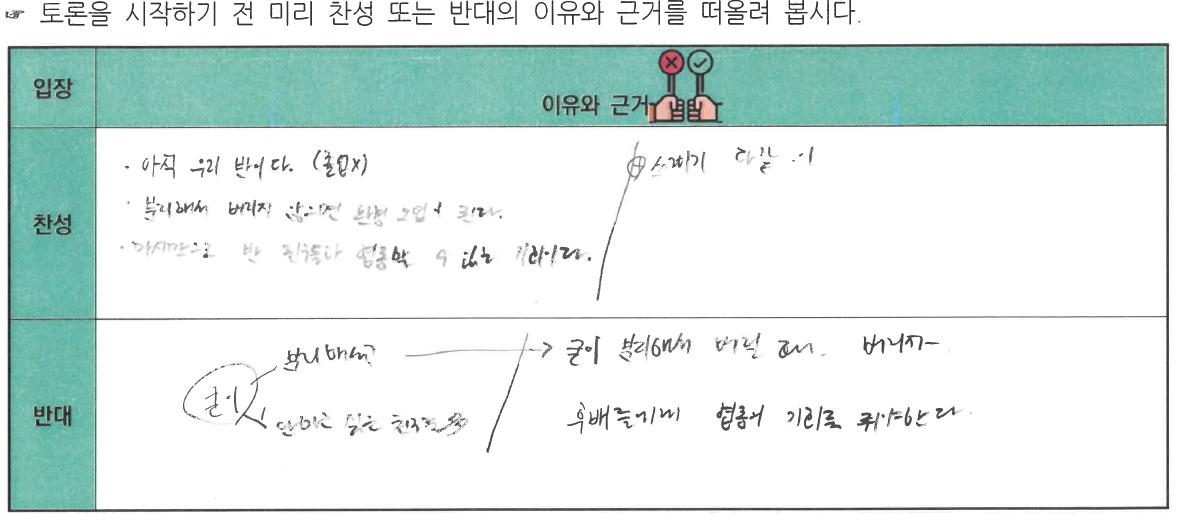 ☞ 토론을 시작하기 전 미리 찬성 또는 반대의 이유와 근거를 떠올려 봅시다.
입장
이유와 근거
찬성
· 아직 우리 반이다. (졸업x)
· 분리해서 버리지 않으면 환경 오염이 된다.
· 마지막으로 반 친구들과 협동할 수 있는 기회이다.
쓰레기
반대
굳이
분리배출
안하고 싶은 친구들
→ 굳이 분리해서 버릴
후배들에게 협동의 기회를 줘야한다.